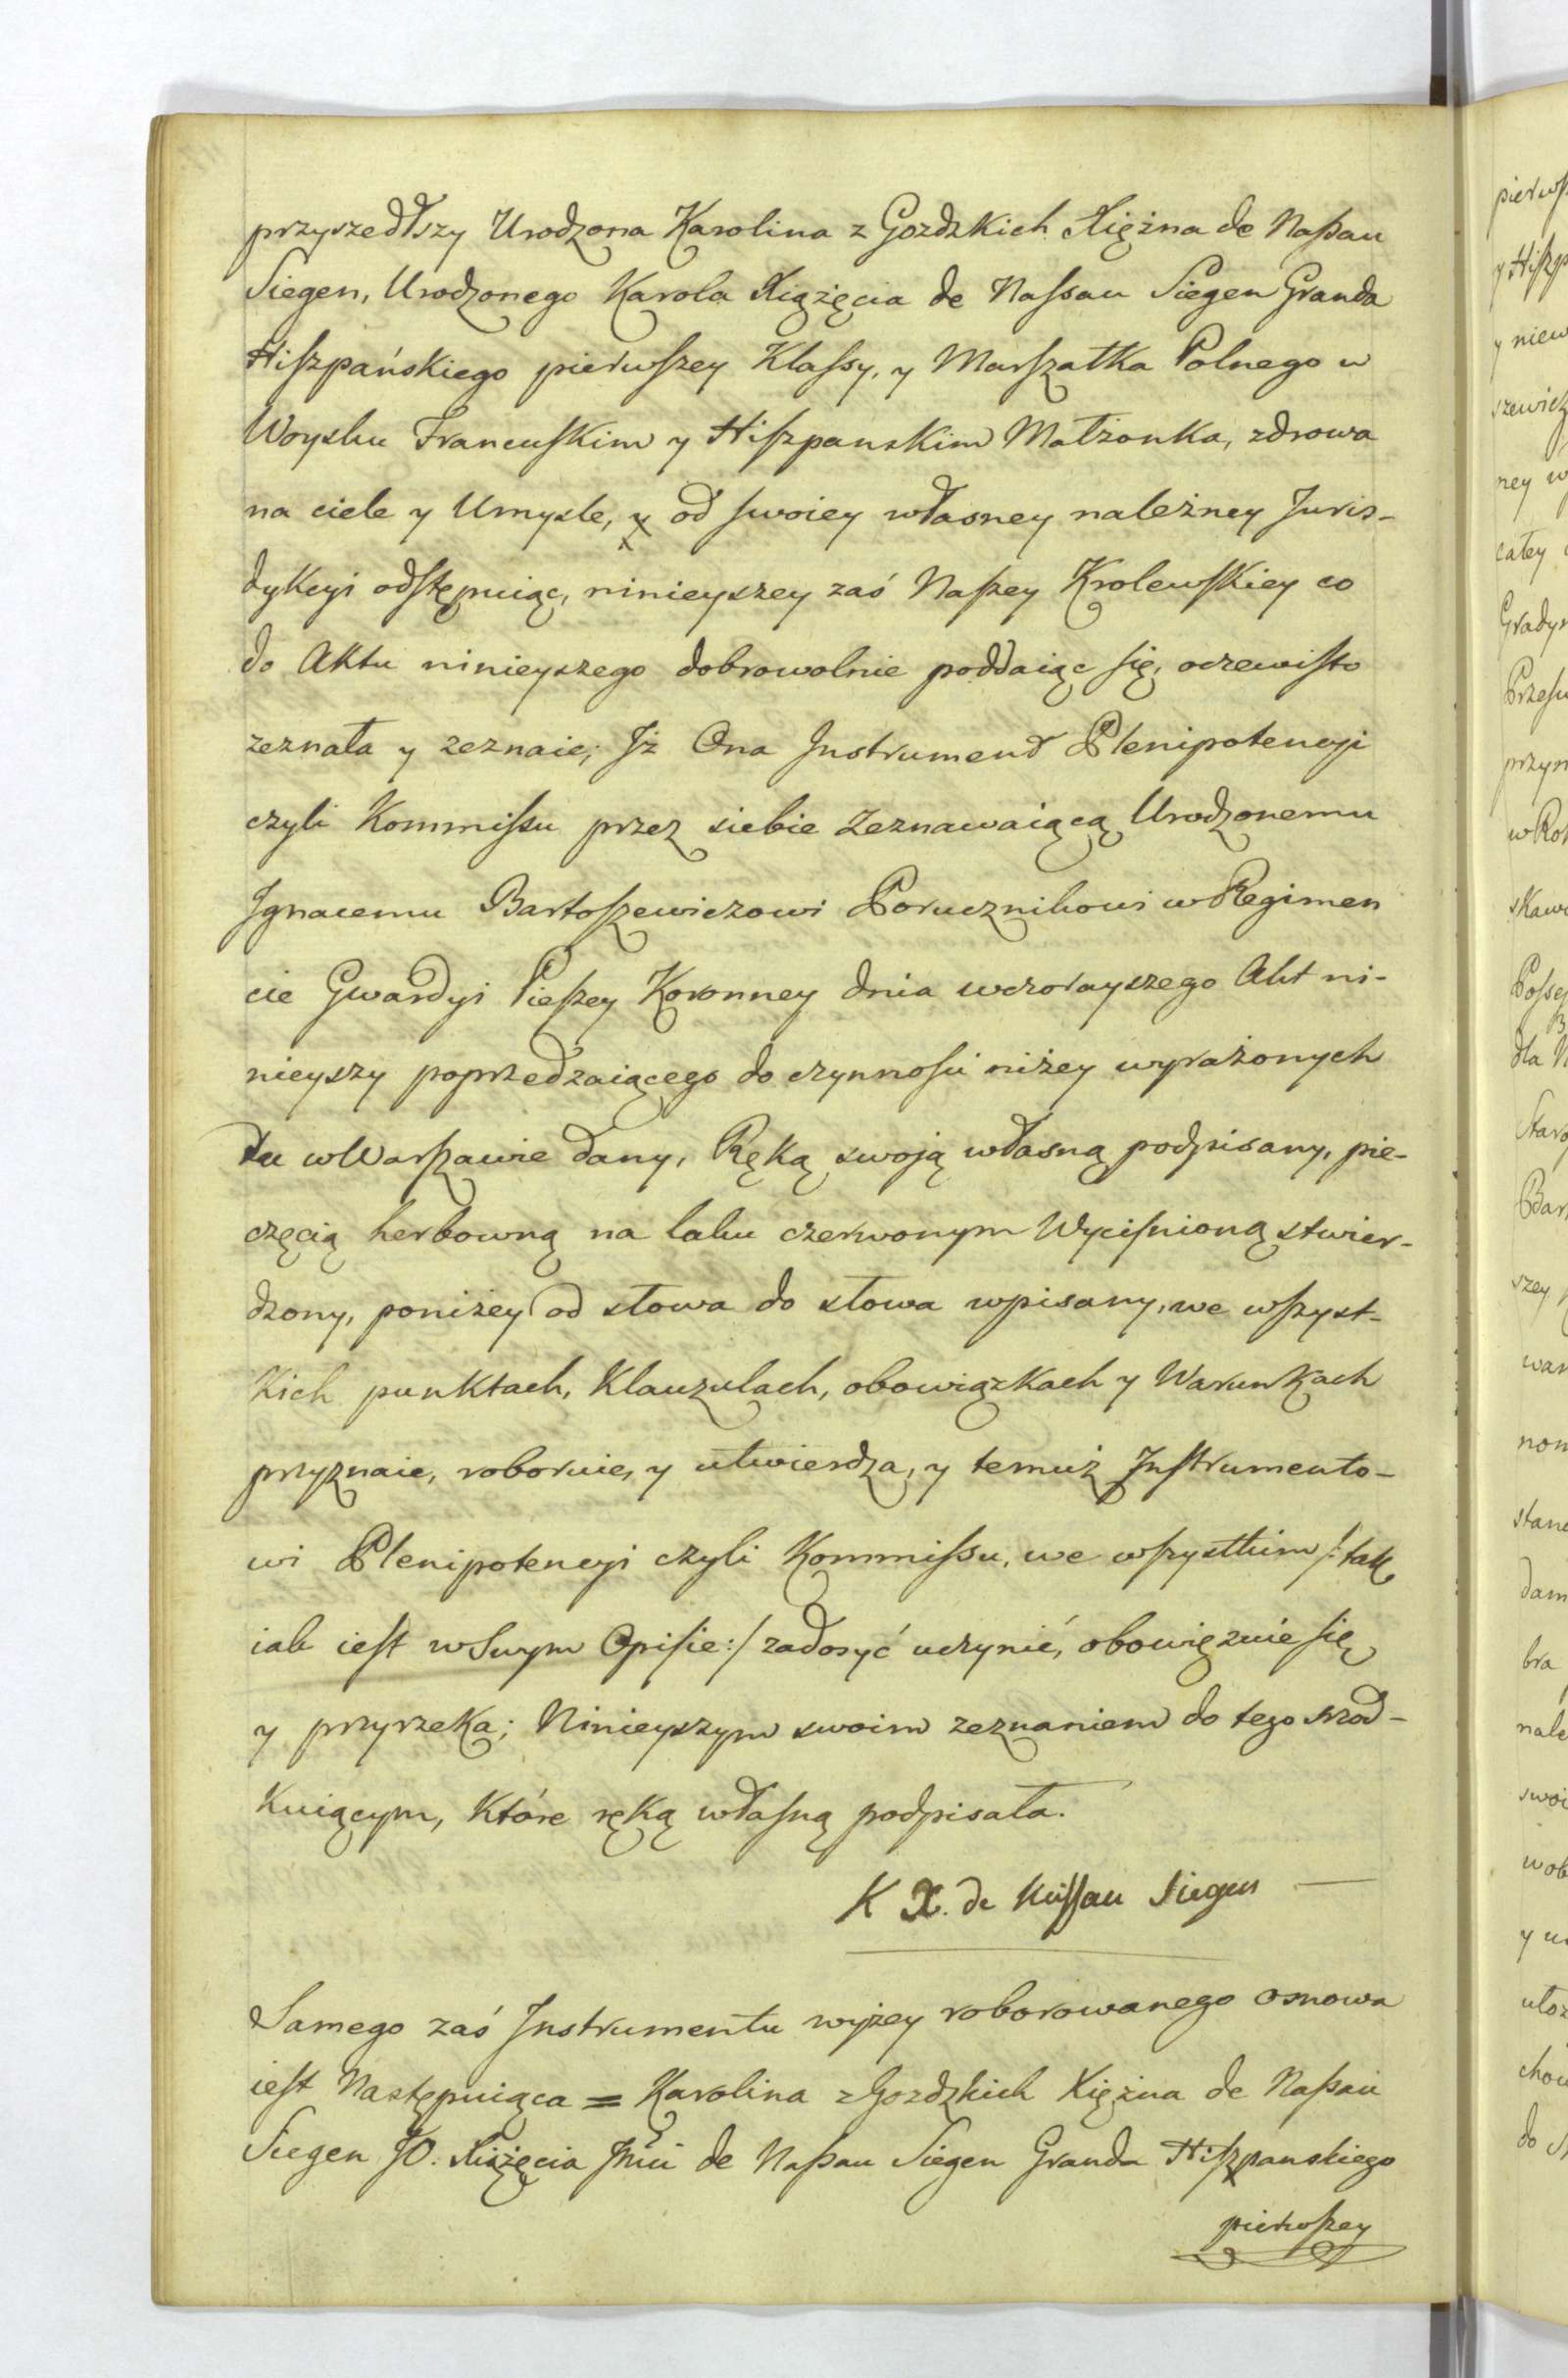 przyszedłszy Urodzona Karolina z Gozdzkich Xiężna de Naßau
Siegen, Urodzonego Karola Xiążęcia de Nassau Siegen Granda
Hiszpańskiego pierwszey Klassy, y Marszałka Polnego w
Woysku Francuskim y Hiszpanskim Małżonka, zdrowa
na ciele y Umysle, y od swoiey własney należney Juris-
dykcyi odstępuiąc, ninieyszey zaś Naszey Krolewskiey co
do Aktu ninieyszego dobrowolnie poddaiąc się, oczewisto
zeznała y zeznaie; Jż Ona Jnstrument Plenipotencyi
czyli Kommissu przez siebie Zeznawaiącą Urodzonemu
Jgnacemu Bartoszewiczowi Porucznikowi w Regimen
cie Gwardyi Pieszey Koronney dnia wczorayszego Akt ni-
nieyszy poprzedzaiącego do czynnosci niżey wyrażonych
tu w Warszawie dany, Ręką swoją własną podpisany, pie-
częcią herbowną na laku czerwonym Wycisnioną stwier-
dzony, poniżey od słowa do słowa wpisany, we wszyst-
kich punktach, Klauzulach, obowiązkach y Warunkach
przyznaie, roboruie, y utwierdza, y temuż Jnstrumento-
wi Plenipotencyi czyli Kommissu, we wszystkim /: tak
iak iest w Swym Opisie :/ zadosyć uczynić, obowięzuie się
y przyrzeka; Ninieyszym swoim zeznaniem do tego srod-
kuiącym, Które ręką własną podpisała.
K X. de Nassau Siegen
Samego zaś Jnstrumentu wyżey roborowanego osnowa
iest Następuiąca = Karolina z Gozdzkich Xiężna de Naßau
Siegen JO. Xiążęcia Jmci de Naßau Siegen Granda Hiszpanskiego
pierwszey